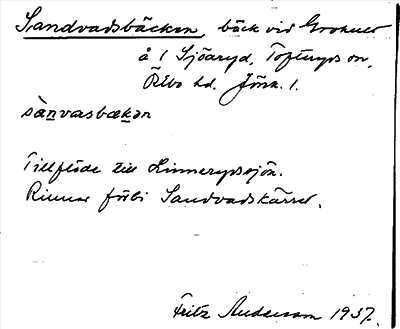 Sandvadsbäcken, bäck vid
å 1 Sjöaryd, Tofteryds sn,
Östbo hd. Jönk. l.
sànvasbækən
Tillflöde till Linnerydssjön.
Rinner förbi Sandvadskärret.
Fritz Andersson 1937.